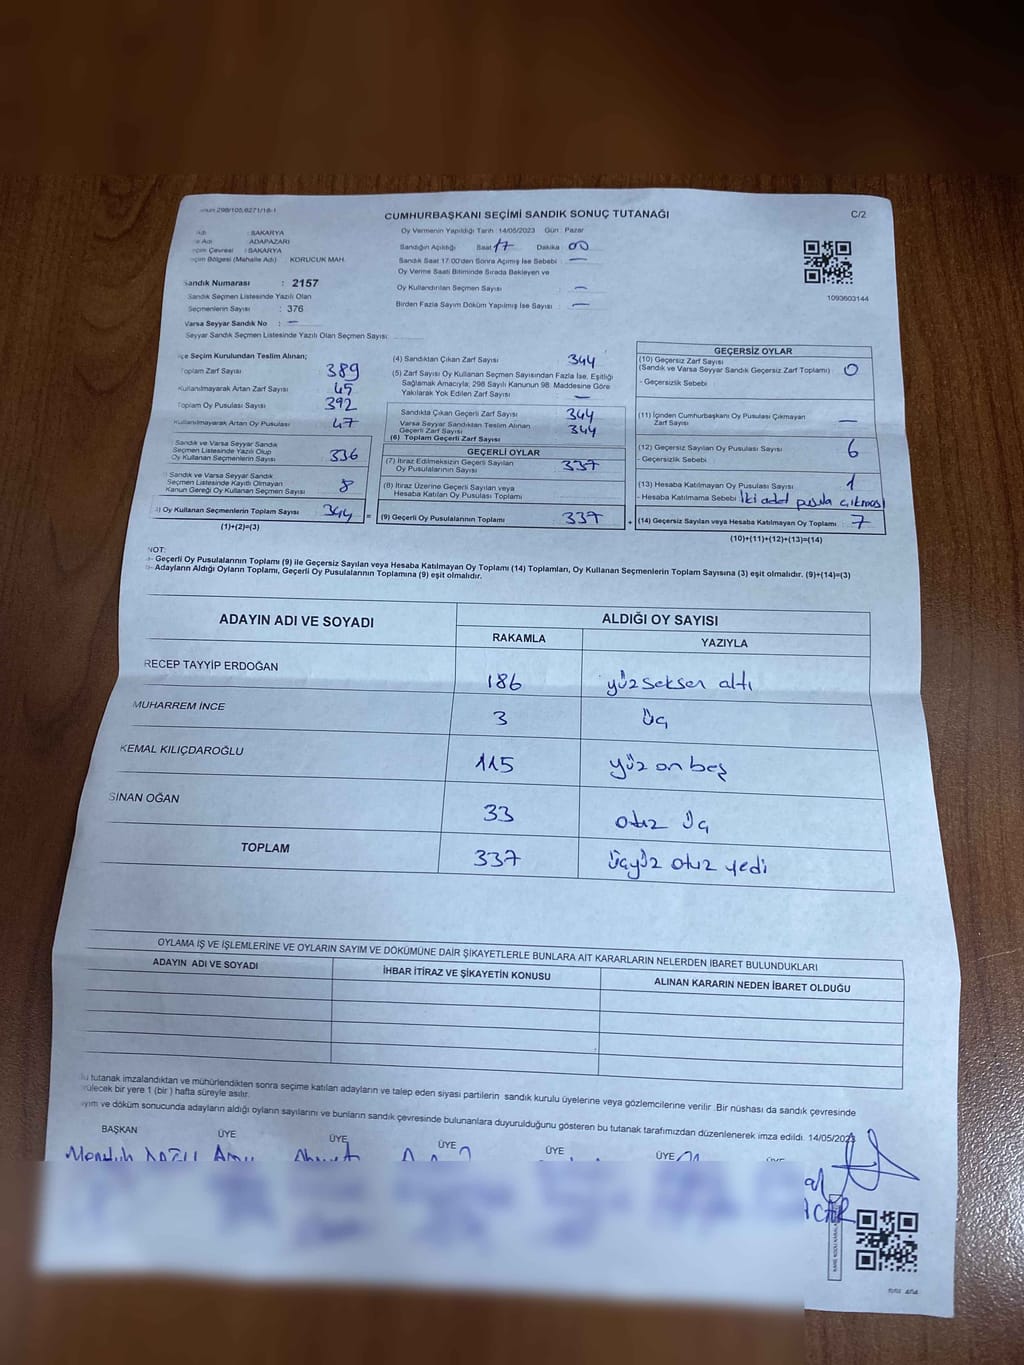 298/105,6271/18-1
CUMHURBAŞKANI SEÇİMİ SANDIK SONUÇ TUTANAĞI
C/2
: SAKARYA
Adı : ADAPAZARI
Çevresi : SAKARYA
Bölgesi (Mahalle Adı) : KORUCUK MAH.
Sandık Numarası : 2157
Sandık Seçmen Listesinde Yazılı Olan
Seçmenlerin Sayısı : 376
Varsa Seyyar Sandık No : —
Seyyar Sandık Seçmen Listesinde Yazılı Olan Seçmen Sayısı:
Oy Vermenin Yapıldığı Tarih : 14/05/2023 Gün : Pazar
Sandığın Açıldığı Saat 17 Dakika 00
Sandık Saat 17:00'den Sonra Açımış İse Sebebi : —
Oy Verme Saati Bitiminde Sırada Bekleyen ve
Oy Kullandırılan Seçmen Sayısı : —
Birden Fazla Sayım Döküm Yapılmış İse Sayısı : —
1093603144
Seçim Kurulundan Teslim Alınan;
Toplam Zarf Sayısı 389
Kullanılmayarak Artan Zarf Sayısı 45
Toplam Oy Pusulası Sayısı 392
Kullanılmayarak Artan Oy Pusulası 47
Sandık ve Varsa Seyyar Sandık
Seçmen Listesinde Yazılı Olup
Oy Kullanan Seçmenlerin Sayısı 336
Sandık ve Varsa Seyyar Sandık
Seçmen Listesinde Kayıtlı Olmayan
Kanun Gereği Oy Kullanan Seçmen Sayısı 8
Oy Kullanan Seçmenlerin Toplam Sayısı 344 =
(1)+(2)=(3)
(4) Sandıktan Çıkan Zarf Sayısı 344
(5) Zarf Sayısı Oy Kullanan Seçmen Sayısından Fazla İse, Eşitliği
Sağlamak Amacıyla; 298 Sayılı Kanunun 98. Maddesine Göre
Yakılarak Yok Edilen Zarf Sayısı : —
Sandıkta Çıkan Geçerli Zarf Sayısı 344
Varsa Seyyar Sandıktan Teslim Alınan
Geçerli Zarf Sayısı 344
(6) Toplam Geçerli Zarf Sayısı
GEÇERLİ OYLAR
(7) İtiraz Edilmeksizin Geçerli Sayılan
Oy Pusulalarının Sayısı : 337
(8) İtiraz Üzerine Geçerli Sayılan veya
Hesaba Katılan Oy Pusulası Toplamı
(9) Geçerli Oy Pusulalarının Toplamı 337 +
GEÇERSİZ OYLAR
(10) Geçersiz Zarf Sayısı
(Sandık ve Varsa Seyyar Sandık Geçersiz Zarf Toplamı) : 0
- Geçersizlik Sebebi :
(11) İçinden Cumhurbaşkanı Oy Pusulası Çıkmayan
Zarf Sayısı : —
(12) Geçersiz Sayılan Oy Pusulası Sayısı : 6
- Geçersizlik Sebebi :
(13) Hesaba Katılmayan Oy Pusulası Sayısı : 1
- Hesaba Katılmama Sebebi : İki adet pusula çıkması
(14) Geçersiz Sayılan veya Hesaba Katılmayan Oy Toplamı : 7
(10)+(11)+(12)+(13)=(14)
NOT:
- Geçerli Oy Pusulalarının Toplamı (9) ile Geçersiz Sayılan veya Hesaba Katılmayan Oy Toplamı (14) Toplamları, Oy Kullanan Seçmenlerin Toplam Sayısına (3) eşit olmalıdır. (9)+(14)=(3)
- Adayların Aldığı Oyların Toplamı, Geçerli Oy Pusulalarının Toplamına (9) eşit olmalıdır.
ADAYIN ADI VE SOYADI
ALDIĞI OY SAYISI
RAKAMLA YAZIYLA
RECEP TAYYİP ERDOĞAN 186 yüz seksen altı
MUHARREM İNCE 3 üç
KEMAL KILIÇDAROĞLU 115 yüz on beş
SİNAN OĞAN 33 otuz üç
TOPLAM 337 üçyüz otuz yedi
OYLAMA İŞ VE İŞLEMLERİNE VE OYLARIN SAYIM VE DÖKÜMÜNE DAİR ŞİKAYETLERLE BUNLARA AİT KARARLARIN NELERDEN İBARET BULUNDUKLARI
ADAYIN ADI VE SOYADI İHBAR İTİRAZ VE ŞİKAYETİN KONUSU ALINAN KARARIN NEDEN İBARET OLDUĞU
tutanak imzalandıktan ve mühürlendikten sonra seçime katılan adayların ve talep eden siyasi partilerin sandık kurulu üyelerine veya gözlemcilerine verilir. Bir nüshası da sandık çevresinde
bir yere 1 (bir) hafta süreyle asılır.
ve döküm sonucunda adayların aldığı oyların sayılarını ve bunların sandık çevresinde bulunanlara duyurulduğunu gösteren bu tutanak tarafımızdan düzenlenerek imza edildi. 14/05/2023
BAŞKAN ÜYE ÜYE ÜYE ÜYE ÜYE